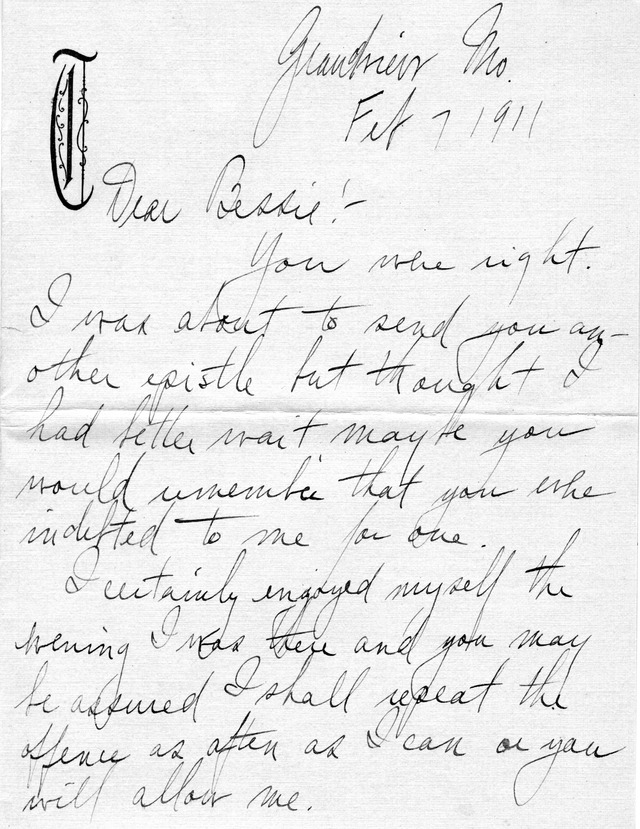 Grandview Mo.
Feb 7 1911
Dear Bessie:-
You were right.
I was about to send you an-
other epistle but thought I
had better wait maybe you
would remember that you were
indebted to me for one.
I certainly enjoyed myself the
evening I was there and you may
be assured I shall repeat the
offence as often as I can or you
will allow me.